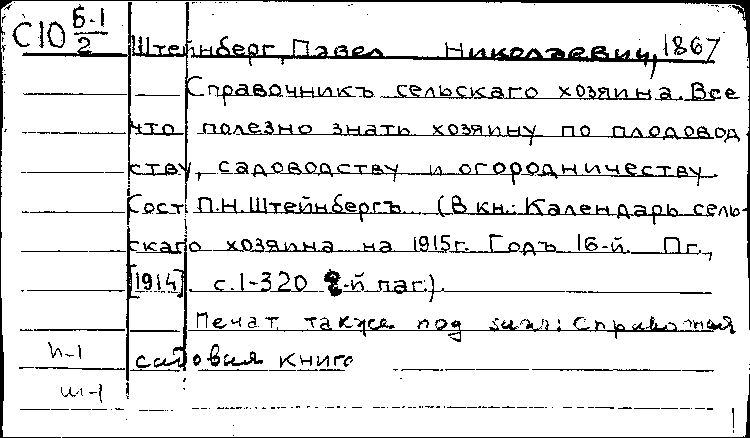 С10 Б-1/2
Штейнберг, Павел Николаевич, 1867
Справочникъ сельскаго хозяина. Все
что полезно знать хозяину по плодовод
ству, садоводству и огородничеству.
Сост П.Н.Штейнбергъ (В кн.: Календарь сель-
скаго хозяина на 1915г. Годъ 16-й. Пг.,
[1914] с.1-320 2-й паг.).
Печат. также под загл: Справочная
садовая книга
п-1
ш-1